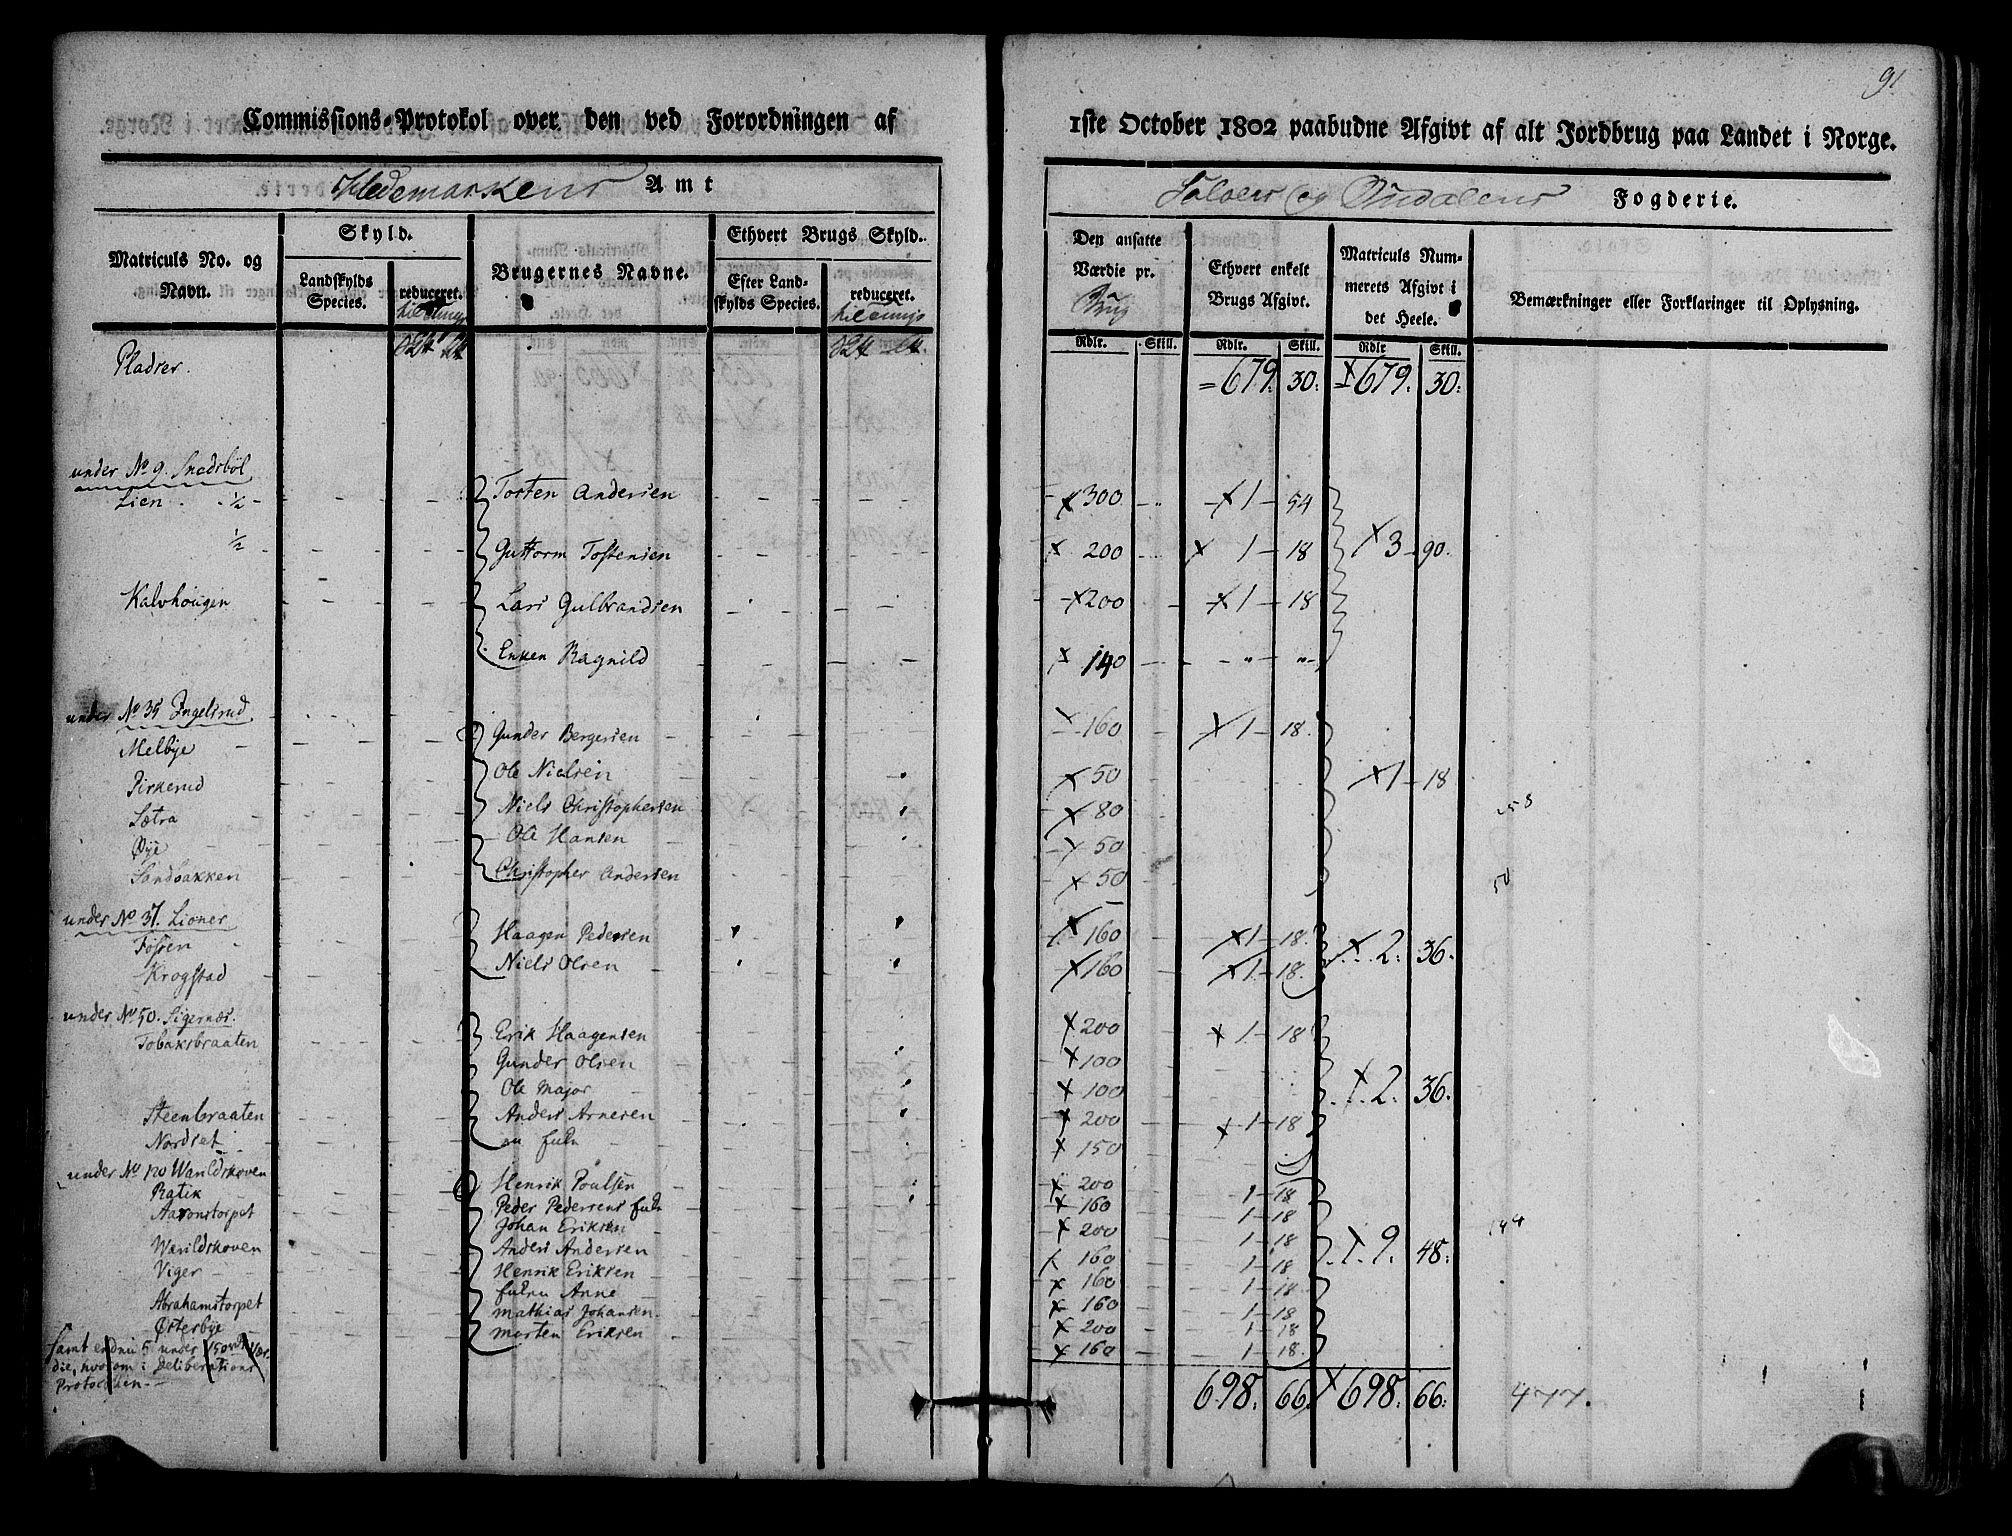 91
Commissions-Protokol over den ved Forordningen af
1ste October 1802 paabudne Afgivt af alt Jordbrug paa Landet i Norge.
Hedemarkens Amt
Soløer og Oudalens Fogderie.
Matriculs No. og Navn.
Skyld.
Landskylds Species.
reduceret.
Brugernes Navne.
Ethvert Brugs Skyld.
Efter Landskylds Species.
reduceret.
Den ansatte Værdie pr. Brug
Ethvert enkelt Brugs Afgivt.
Matriculs Nummerets Afgivt i det Heele.
Bemærkninger eller Forklaringer til Oplysning.
Rdlr. Skill. Rdlr. Skill. Rdlr. Skill.
Pladser. = 679. 30: 679. 30:
under No 9. Snedsbøl
Lien ½ Tosten Andersen 300 1 - 54
½ Guttorm Tostensen 200 1 - 18 3 - 90.
Kalvhougen Lars Gulbrandsen 200 1 - 18
Enken Ragnild 140 " "
under No 35 Ingelsrud
Melbye Gunder Bergersen 160 1 - 18.
Pirkerud Ole Nielsen 50 1 - 18
Sætra Niels Christophersen 80
Øye Ole Hansen 50
Sandbakken Christopher Andersen 50
under No 37. Lioner
Fossen Haagen Pedersen 160 1 - 18. 2. 36.
Krogstad Niels Olsen 160 1 - 18.
under No 50. Sigernæs.
Tobaksbraaten Erik Haagensen 200 1 - 18
Gunder Olsen 100
Ole Major 100 2. 36.
Steenbraaten Anders Arnesen 200 1 - 18
Nordset 150
under No 120 Warildskoven
Ratik Henrik Poulsen 200 1 - 18
Aaronstorpet Peder Pedersens 160 1 - 18
Johan Eriksen 200 1 - 18
Warildskoven Anders Andersen 160 1 - 18 9. 48:
Viger Henrik Eriksen 160 1 - 18.
Anne 160 1 - 18
Abrahamstorpet Mathias Johansen 200 1 - 18
Østerbye Morten Eriksen 160 1 - 18.
Samt endnu 5 under 150 rdr Vær-
die, hvorom i deliberations
Protocollen
698. 66 698. 66: 477.